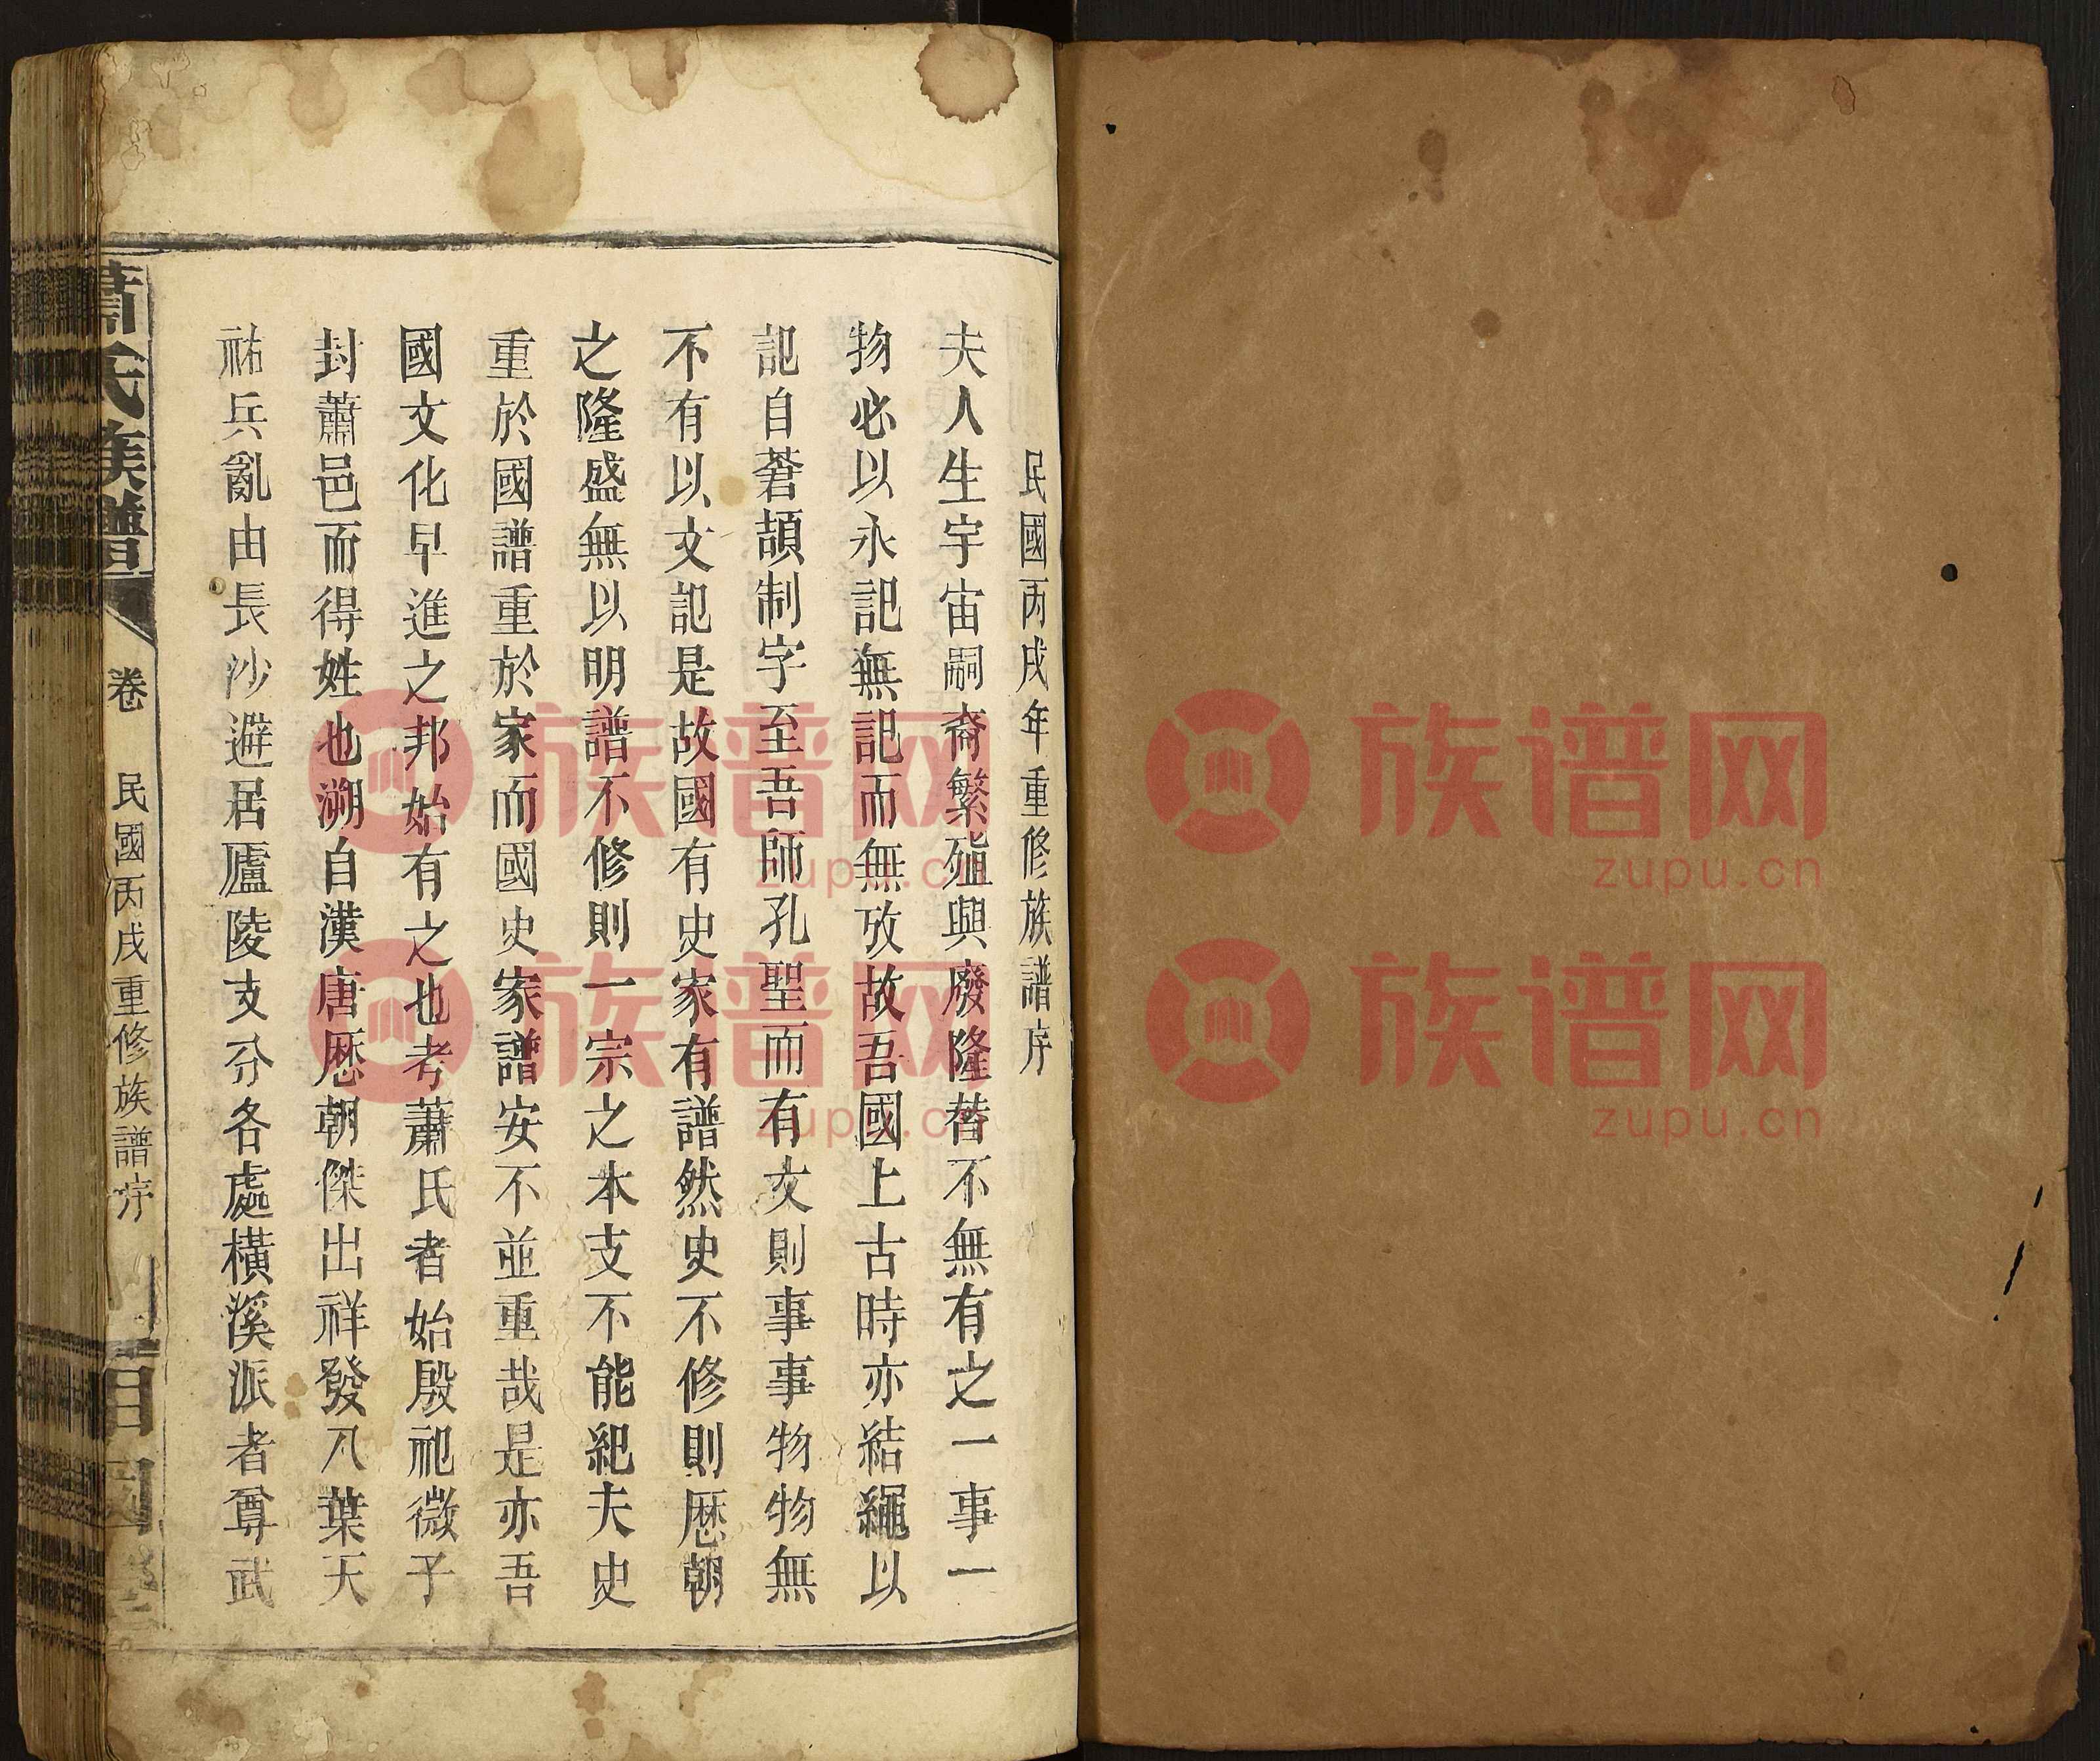 民國丙戌年重修族譜序
夫人生宇宙嗣裔繁殖與廢隆替不無有之一事一
物必以永記無記而無攷故吾國上古時亦結繩以
記自蒼頡制字至吾師孔聖而有文則事事物物無
不有以文記是故國有史家有譜然史不修則歷朝
之隆盛無以明譜不修則一宗之本支不能紀夫史
重於國譜重於家而國史家譜安不並重哉是亦吾
國文化早進之邦始有之也考蕭氏者始殷祀微子
封蕭邑而得姓也溯自漢唐歷朝傑出祥發八葉天
祐兵亂由長沙避居廬陵支分各處橫溪派者尊武
蕭氏族譜
卷
民國丙戌重修族譜序
一
族谱网
zupu.cn
族谱网
zupu.cn
族谱网
zupu.cn
族谱网
zupu.cn